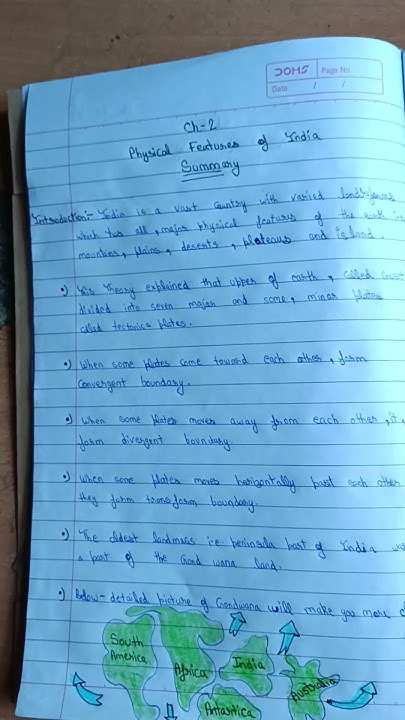 DOMS
Page No.
Date / /
Ch-2
Physical Features of India
Summary
Introduction:- India is a vast Country with varied landforms
which has all, major physical features of the earth i.e
mountains, plains, deserts, plateaus and island.
•) This Theory explained that upper of earth, called Crust
divided into seven major and some, minor plates
called tectonics plates.
•) When some plates come toward each other, form
Convergent boundary.
•) When some plates moves away from each other, it,
form divergent boundary.
•) When some plates moves horizontally past each other
they form transform boundary.
•) The oldest landmass i.e. peninsula part of India was
a part of the Gondwana land.
•) Below- detailed picture of Gondwana will make you more
South
America
Africa
India
Australia
Antartica